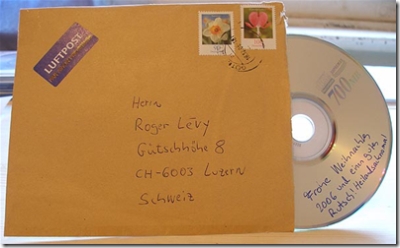 LUFTPOST
Herrn
Roger Lévy
Gütschhöhe 8
CH-6003 Luzern
Schweiz
700
Frohe Weihnachten
2006 und einen guten
Rutsch!